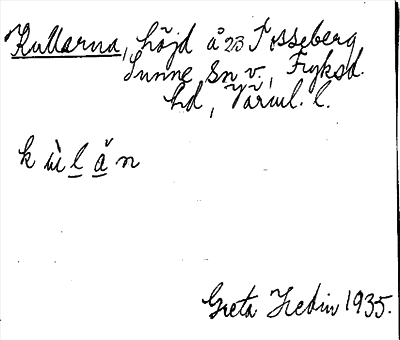 Kullarna, höjd å 23 Fosseberg
Sunne sn v., Fryksd.
hd, Värml. l.
k ù l ǎ n
Greta Hedin 1935.